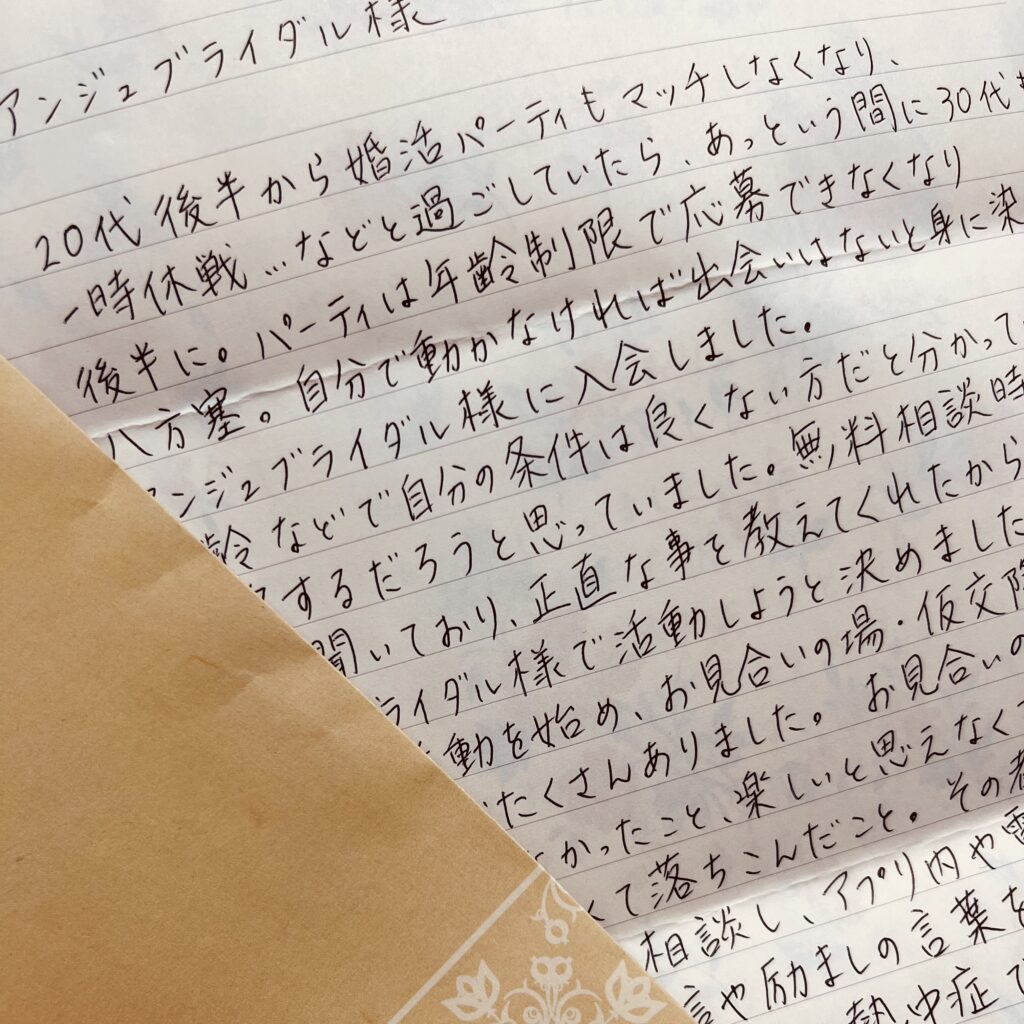 アンジュブライダル様
20代後半から婚活パーティもマッチしなくなり、
一時休戦…などと過ごしていたら、あっという間に30代
後半に。パーティは年齢制限で応募できなくなり
八方塞。自分で動かなければ出会いはないと身に染
ンジュブライダル様に入会しました。
齢などで自分の条件は良くない方だと分かって
するだろうと思っていました。無料相談時
聞いており、正直な事を教えてくれたから
ライダル様で活動しようと決めました
動を始め、お見合いの場・仮交際
たくさんありました。お見合いの
かったこと、楽しいと思えなく
て落ちこんだこと。その
相談し、アプリ内や
言や励ましの言葉を
熱中症で